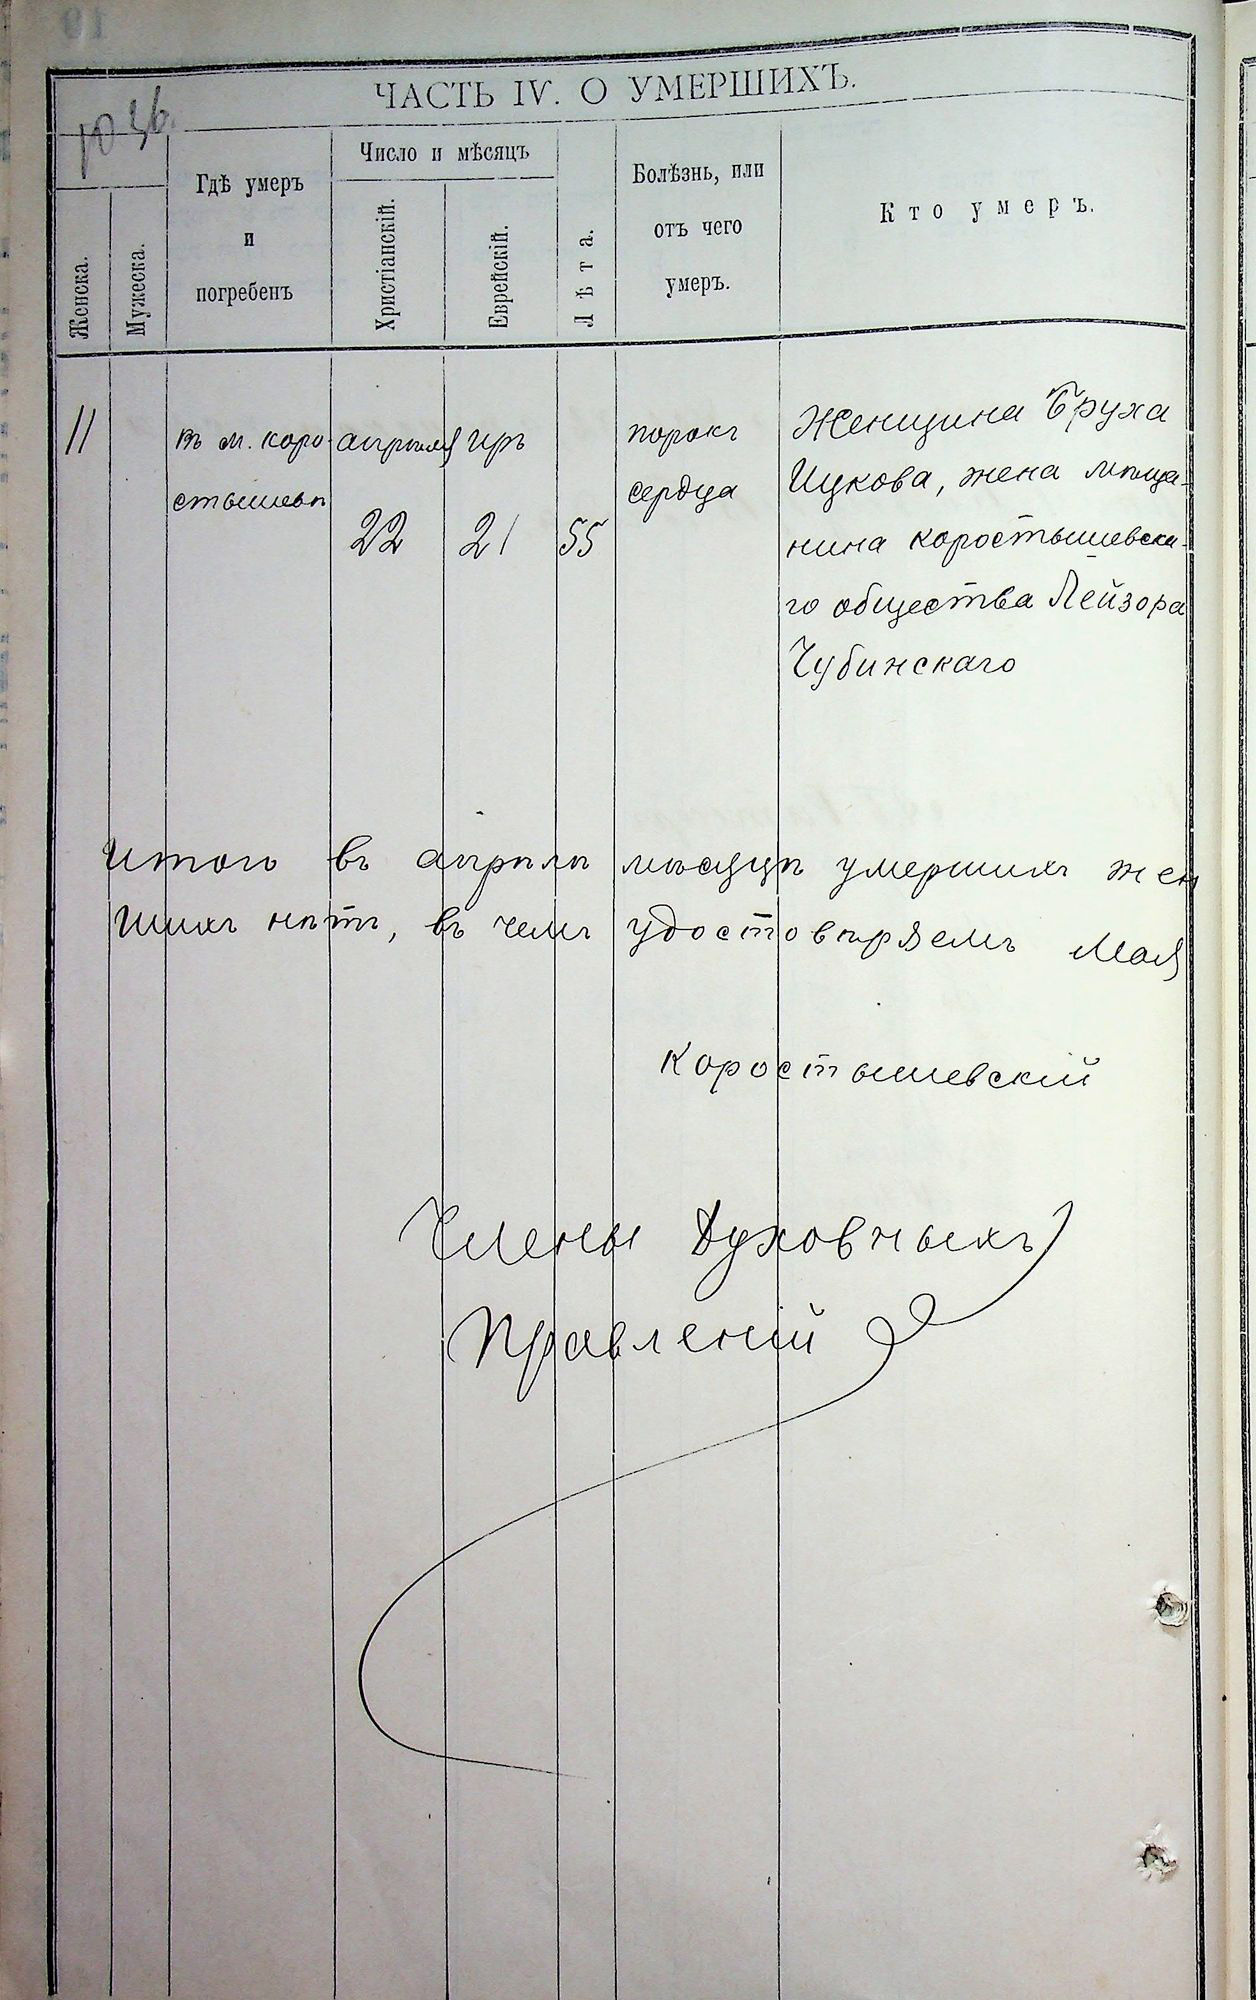 ЧАСТЬ IV. О УМЕРШИХЪ.
Женска.
Мужеска.
Гдѣ умеръ
и
погребенъ
Число и мѣсяцъ
Христіанскій.
Еврейскій.
Лѣта.
Болѣзнь, или
отъ чего
умеръ.
Кто умеръ.
11
въ м. Коро-
стышевѣ
апрѣля
22
Иръ
21
55
порокъ
сердца
Женщина Бруха
Ицкова, жена мѣща-
нина коростышевска-
го общества Лейзора
Чубинскаго
Итого въ апрѣлѣ мѣсяцѣ умершихъ жен
въ чемъ удостовѣряемъ
Коростышевскій
Члены Духовныхъ
Правленій